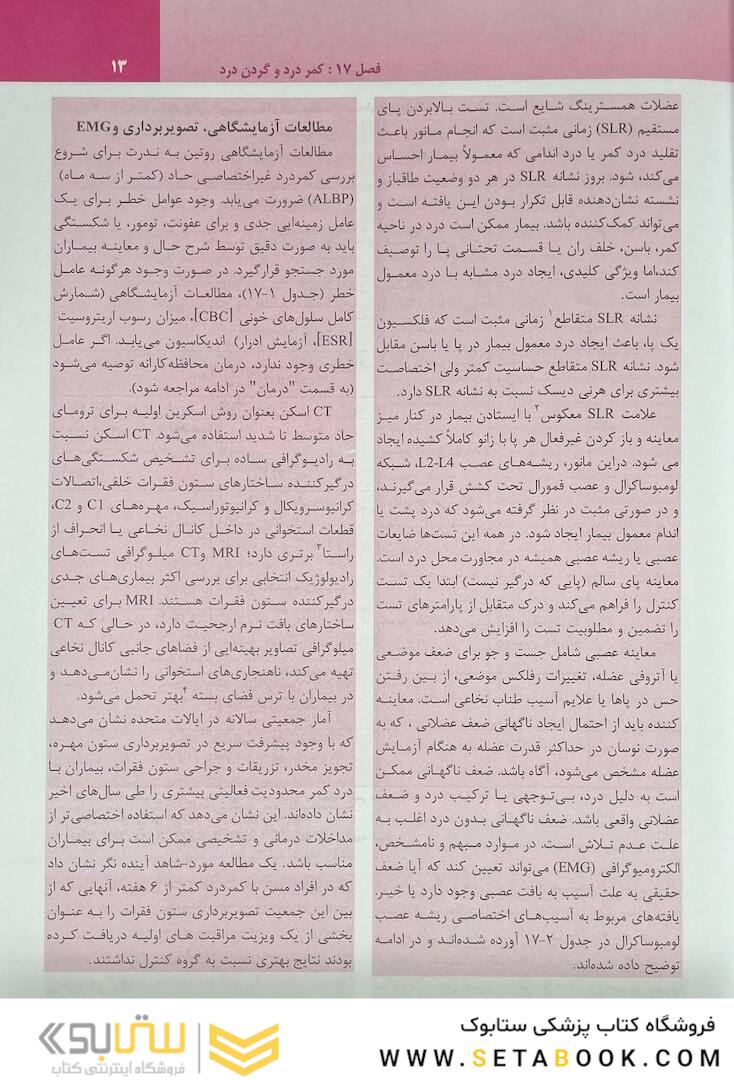 فصل ۱۷: کمر درد و گردن درد
۱۳
عضلات همسترینگ شایع است. تست بالابردن پای
مستقیم (SLR) زمانی مثبت است که انجام مانور باعث
تقلید درد کمر یا درد اندامی که معمولاً بیمار احساس
می‌کند، شود. بروز نشانه SLR در هر دو وضعیت طاقباز و
نشسته نشان‌دهنده قابل تکرار بودن این یافته است و
می‌تواند کمک‌کننده باشد. بیمار ممکن است درد در ناحیه
کمر، باسن، خلف ران یا قسمت تحتانی پا را توصیف
کند،اما ویژگی کلیدی، ایجاد درد مشابه با درد معمول
بیمار است.
نشانه SLR متقاطع۱ زمانی مثبت است که فلکسیون
یک پا، باعث ایجاد درد معمول بیمار در پا یا باسن مقابل
شود. نشانه SLR متقاطع حساسیت کمتر ولی اختصاصت
بیشتری برای هرنی دیسک نسبت به نشانه SLR دارد.
علامت SLR معکوس۲ با ایستادن بیمار در کنار میز
معاینه و باز کردن غیرفعال هر پا با زانو کاملاً کشیده ایجاد
می شود. دراین مانور، ریشه‌های عصب L2-L4، شبکه
لومبوساکرال و عصب فمورال تحت کشش قرار می‌گیرند،
و در صورتی مثبت در نظر گرفته می‌شود که درد پشت یا
اندام معمول بیمار ایجاد شود. در همه این تست‌ها ضایعات
عصبی یا ریشه عصبی همیشه در مجاورت محل درد است.
معاینه پای سالم (پایی که درگیر نیست) ابتدا یک تست
کنترل را فراهم می‌کند و درک متقابل از پارامترهای تست
را تضمین و مطلوبیت تست را افزایش می‌دهد.
معاینه عصبی شامل جست و جو برای ضعف موضعی
یا آتروفی عضله، تغییرات رفلکس موضعی، از بین رفتن
حس در پاها یا علایم آسیب طناب نخاعی است. معاینه
کننده باید از احتمال ایجاد ناگهانی ضعف عضلانی ، که به
صورت نوسان در حداکثر قدرت عضله به هنگام آزمایش
عضله مشخص می‌شود، آگاه باشد. ضعف ناگهانی ممکن
است به دلیل درد، بی‌توجهی یا ترکیب درد و ضعف
عضلانی واقعی باشد. ضعف ناگهانی بدون درد اغلب به
علت عدم تلاش است. در موارد مبهم و نامشخص،
الکترومیوگرافی (EMG) می‌تواند تعیین کند که آیا ضعف
حقیقی به علت آسیب به بافت عصبی وجود دارد یا خیر.
یافته‌های مربوط به آسیب‌های اختصاصی ریشه عصب
لومبوساکرال در جدول ۲-۱۷ آورده شده‌اند و در ادامه
توضیح داده شده‌اند.
مطالعات آزمایشگاهی، تصویربرداری وEMG
مطالعات آزمایشگاهی روتین به ندرت برای شروع
بررسی کمردرد غیراختصاصی حاد (کمتر از سه ماه)
(ALBP) ضرورت می‌یابد. وجود عوامل خطر برای یک
عامل زمینه‌ایی جدی و برای عفونت، تومور، یا شکستگی
باید به صورت دقیق توسط شرح حال و معاینه بیماران
مورد جستجو قرارگیرد. در صورت وجود هرگونه عامل
خطر (جدول ۱-۱۷)، مطالعات آزمایشگاهی (شمارش
کامل سلول‌های خونی [CBC]، میزان رسوب اریتروسیت
[ESR]، آزمایش ادرار) اندیکاسیون می‌یابد. اگر عامل
خطری وجود ندارد، درمان محافظه‌کارانه توصیه می‌شود
(به قسمت "درمان" در ادامه مراجعه شود).
CT اسکن بعنوان روش اسکرین اولیه برای ترومای
حاد متوسط تا شدید استفاده می‌شود. CT اسکن نسبت
به رادیوگرافی ساده برای تشخیص شکستگی‌های
درگیرکننده ساختارهای ستون فقرات خلفی،اتصالات
کرانیوسرویکال و کرانیوتوراسیک، مهره‌های C1 و C2،
قطعات استخوانی در داخل کانال نخاعی یا انحراف از
راستا۳ برتری دارد؛ MRI وCT میلوگرافی تست‌های
رادیولوژیک انتخابی برای بررسی اکثر بیماری‌های جدی
درگیرکننده ستون فقرات هستند. MRI برای تعیین
ساختارهای بافت نرم ارجحیت دارد، در حالی که CT
میلوگرافی تصاویر بهینه‌ایی از فضاهای جانبی کانال نخاعی
تهیه می‌کند، ناهنجاری‌های استخوانی را نشان‌می‌دهد و
در بیماران با ترس فضای بسته ۴بهتر تحمل می‌شود.
آمار جمعیتی سالانه در ایالات متحده نشان می‌دهد
که با وجود پیشرفت سریع در تصویربرداری ستون مهره،
تجویز مخدر، تزریقات و جراحی ستون فقرات، بیماران با
درد کمر محدودیت فعالیتی بیشتری را طی سال‌های اخیر
نشان داده‌اند. این نشان می‌دهد که استفاده اختصاصی‌تر از
مداخلات درمانی و تشخیصی ممکن است برای بیماران
مناسب باشد. یک مطالعه مورد-شاهد آینده نگر نشان داد
که در افراد مسن با کمردرد کمتر از ۶ هفته، آنهایی که از
بین این جمعیت تصویربرداری ستون فقرات را به عنوان
بخشی از یک ویزیت مراقبت های اولیه دریافت کرده
بودند نتایج بهتری نسبت به گروه کنترل نداشتند.
فروشگاه کتاب پزشکی ستابوک
WWW.SETABOOK.COM
ستابوک
فروشگاه اینترنتی کتاب